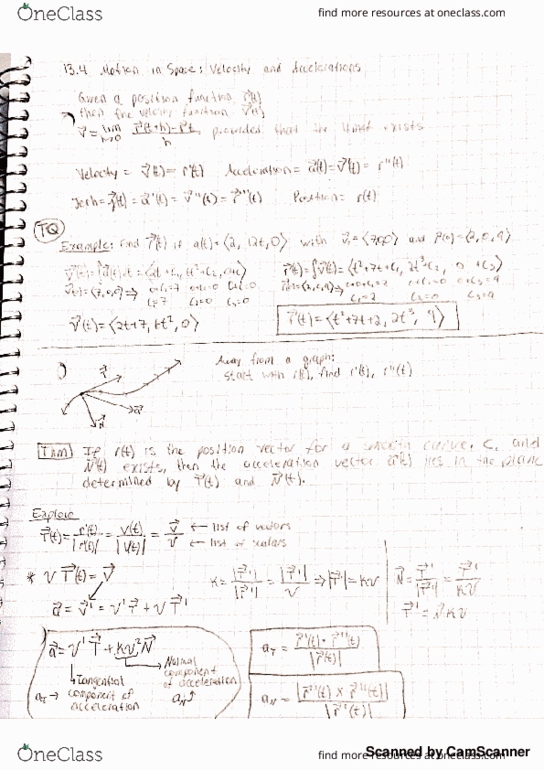 OneClass
find more resources at oneclass.com
13.4 Motion in Space: Velocity and Accelerations
Given a position function r⃗(t)
then the velocity function v⃗(t)
v⃗ = lim h→0 r⃗(t+h)-r⃗t / h, provided that the limit exists
Velocity = v⃗(t) = r'(t) Acceleration = a⃗(t) = v⃗'(t) = r⃗''(t)
Jerk = j⃗(t) = a⃗'(t) = v⃗''(t) = r⃗'''(t) Position = r(t)
TQ
Example: find r⃗(t) if a(t) = ⟨2, 12t, 0⟩ with v⃗ = ⟨7,0,0⟩ and r(0) = ⟨2,0,9⟩
v⃗(t) = ⟨2t+7, 6t², 0⟩
r⃗(t) = ⟨t²+7t+2, 2t³, 9⟩
Away from a graph:
start with r(t), find r'(t), r''(t)
Thm If r(t) is the position vector for a smooth curve, C, and
N⃗(t) exists, then the acceleration vector a⃗(t) lies in the plane
determined by T⃗(t) and N⃗(t).
Explore
T⃗(t) = r'(t) / |r'(t)| = v(t) / |v(t)| = v⃗ / v ← list of vectors
← list of scalars
* v T⃗(t) = v⃗
κ = |T⃗'| / |r⃗'| = |T⃗'| / v ⇒ |T⃗'| = κv
N⃗ = T⃗' / |T⃗'| = T⃗' / κv
a⃗ = v⃗' = v'T⃗ + vT⃗'
T⃗' = N⃗κv
a⃗ = v'T⃗ + κv²N⃗
Tangential component of acceleration
Normal component of acceleration
a_T = r⃗'(t) · r⃗''(t) / |r⃗'(t)|
a_N = |r⃗'(t) × r⃗''(t)| / |r⃗'(t)|
OneClass
find more resources at oneclass.com
Scanned by CamScanner